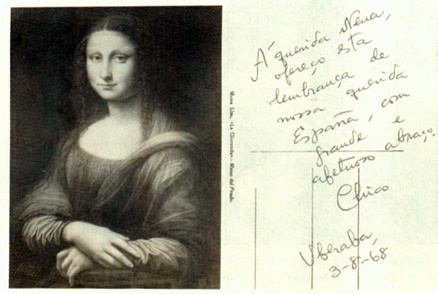 Mona Lisa, «La Gioconda».- Museo del Prado.
Á querida Nena,
ofereço esta
lembrança de
nossa querida
España, com
grande e
afetuoso abraço,
Chico
Uberaba,
3-8-68